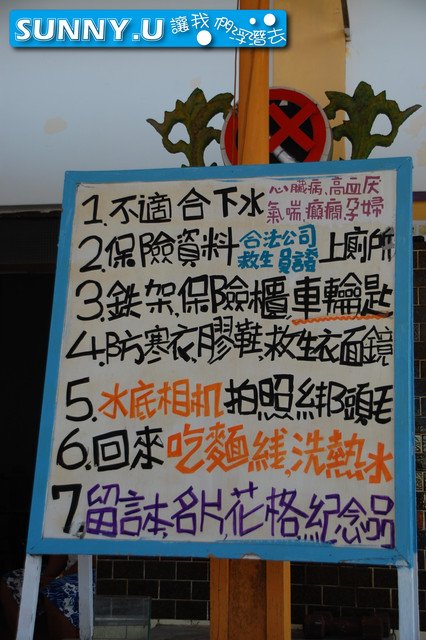 SUNNY.U 讓我們浮潛去
1.不適合下水 心臟病、高血压
氣喘、癲癇、孕婦
2.保險資料 合法公司
救生員證 上廁所
3.鉄架、保險櫃、車輪匙
4.防寒衣、膠鞋、救生衣面鏡
5.水底相机拍照綁頭毛
6.回來吃麵綫、洗熱水
7.留言本、名片、花格、紀念品